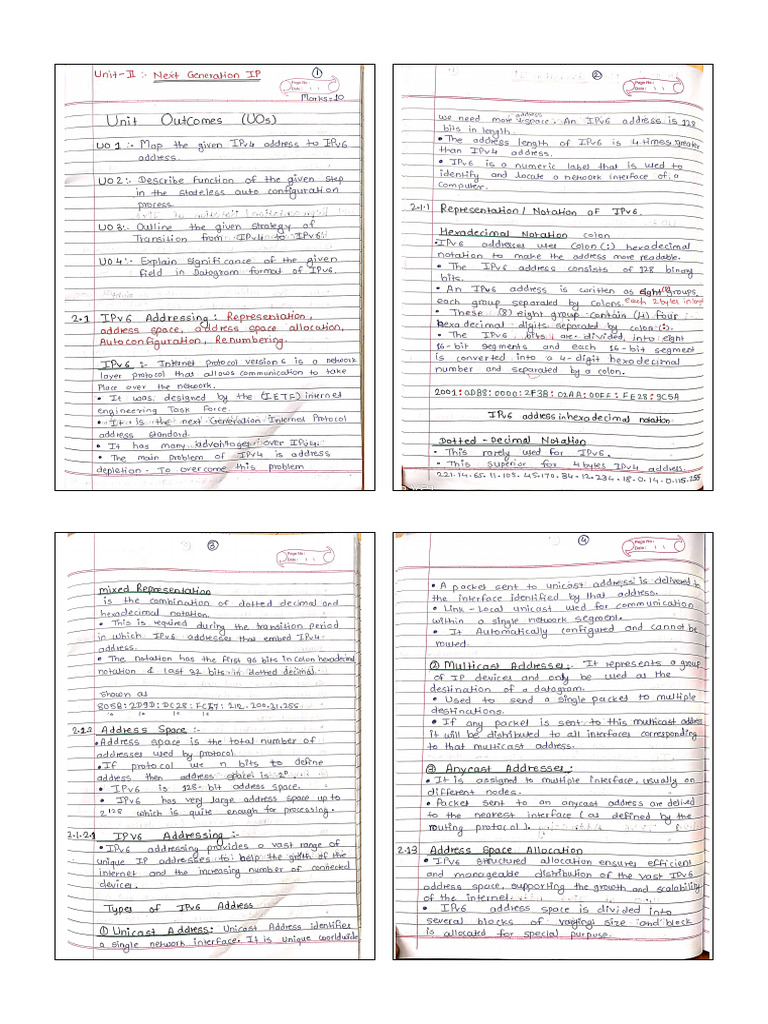 Unit-II :- Next Generation IP
①
Page No:
Date:
Marks=10
Unit Outcomes (UOs)
UO 1 :- Map the given IPv4 address to IPv6
address.
UO 2 :- Describe function of the given step
in the stateless auto configuration
process
UO 3 :- Outline the given strategy of
Transition from IPv4 to IPv6
UO 4 :- Explain Significance of the given
field in Datagram format of IPv6.
2.1 IPv6 Addressing : Representation,
address space, address space allocation,
Autoconfiguration, Renumbering.
IPv6 :- Internet protocol version 6 is a network
layer protocol that allows communication to take
Place over the network.
• It was designed by the (IETF) internet
engineering Task Force.
• It is the next Generation Internet Protocol
address standard.
• It has many advantages over IPv4.
• The main problem of IPv4 is address
depletion. To overcome this problem
②
Page No:
Date:
address
we need more space. An IPv6 address is 128
bits in length.
• The address length of IPv6 is 4 times greater
than IPv4 address.
• IPv6 is a numeric label that is used to
identify and locate a network interface of a
computer.
2.1.1 Representation/ Notation of IPv6.
Hexadecimal Notation colon
• IPv6 addresses uses Colon (:) hexadecimal
notation to make the address more readable.
• The IPv6 address consists of 128 binary
bits.
• An IPv6 address is written as eight (8) groups,
each group separated by colons. Each 2 bytes in
• These (8) eight group contain (4) four
hexa decimal digits separated by colon (:).
• The IPv6 bits are divided into eight
16-bit segments and each 16-bit segment
is converted into a 4-digit hexadecimal
number and separated by a colon.
2001:0DB8:0000:2F3B:02AA:00FF:FE28:9C5A
IPv6 address in hexadecimal notation
Dotted - Decimal Notation
• This rarely used for IPv6.
• This superior for 4 bytes IPv4 address
221.14.65.11.105.45.170.34.12.234.18.0.14.0.115.255
③
Page No:
Date:
mixed Representation
is the combination of dotted decimal and
hexadecimal notation.
• This is required during the transition period
in which IPv6 addresses that embed IPv4
address.
• The notation has the first 96 bits in colon hexadecimal
notation & last 32 bits in dotted decimal.
Shown as
805B:2D9D:DC28:FC57:212.200.31.255
2.1.2 Address Space :-
• Address space is the total number of
addresses used by protocol.
• If protocol use n bits to define
address then address space is 2ⁿ.
• IPv6 is 128-bit address space.
• IPv6 has very large address space up to
2¹²⁸ which is quite enough for processing.
2.1.2.1 IPv6 Addressing :-
• IPv6 addressing provides a vast range of
unique IP addresses to help the growth of the
internet and the increasing number of connected
devices.
Types of IPv6 Address
① Unicast Address: Unicast Address identifier
a single network interface. It is unique worldwide
④
Page No:
Date:
• A packet sent to unicast address is delivered to
the interface identified by that address.
• Link-Local unicast used for communication
within a single network segment.
• It Automatically configured and cannot be
routed.
② Multicast Addresses:- It represents a group
of IP devices and only be used as the
destination of a datagram.
• Used to send a single packet to multiple
destinations.
• If any packet is sent to this multicast address
it will be distributed to all interfaces corresponding
to that multicast address.
③ Anycast Addresses:
• It is assigned to multiple interface, usually on
different nodes.
• Packet sent to an anycast address are delived
to the nearest interface (as defined by the
routing protocol).
2.1.3 Address Space Allocation
• IPv6 structured allocation ensures efficient
and manageable distribution of the vast IPv6
address space, supporting the growth and scalability
of the internet.
• IPv6 address space is divided into
several blocks of varying size and block
is allocated for special purpose.